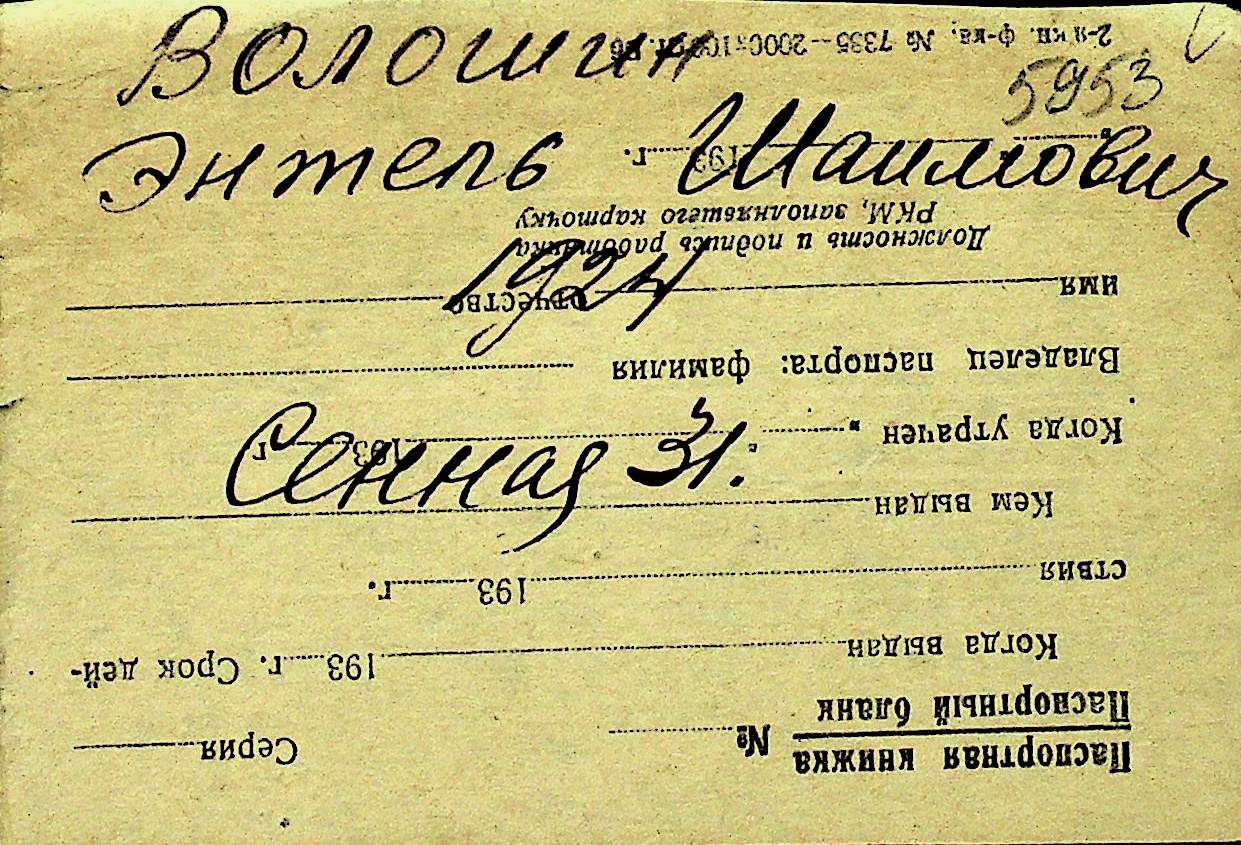 Волошин
5953
Энтель Шаимович
1924
Сенная 31.
Паспортная книжка № Серия
Паспортный бланк
Когда выдан 193 г. Срок дей-
ствия 193 г.
Кем выдан
Когда утрачен „ “ 193 г.
Владелец паспорта: фамилия
имя отчество
Должность и подпись работника
РКМ, заполнявшего карточку
„ 193 г.
2-я кн. ф-ка. № 7335—2000×100